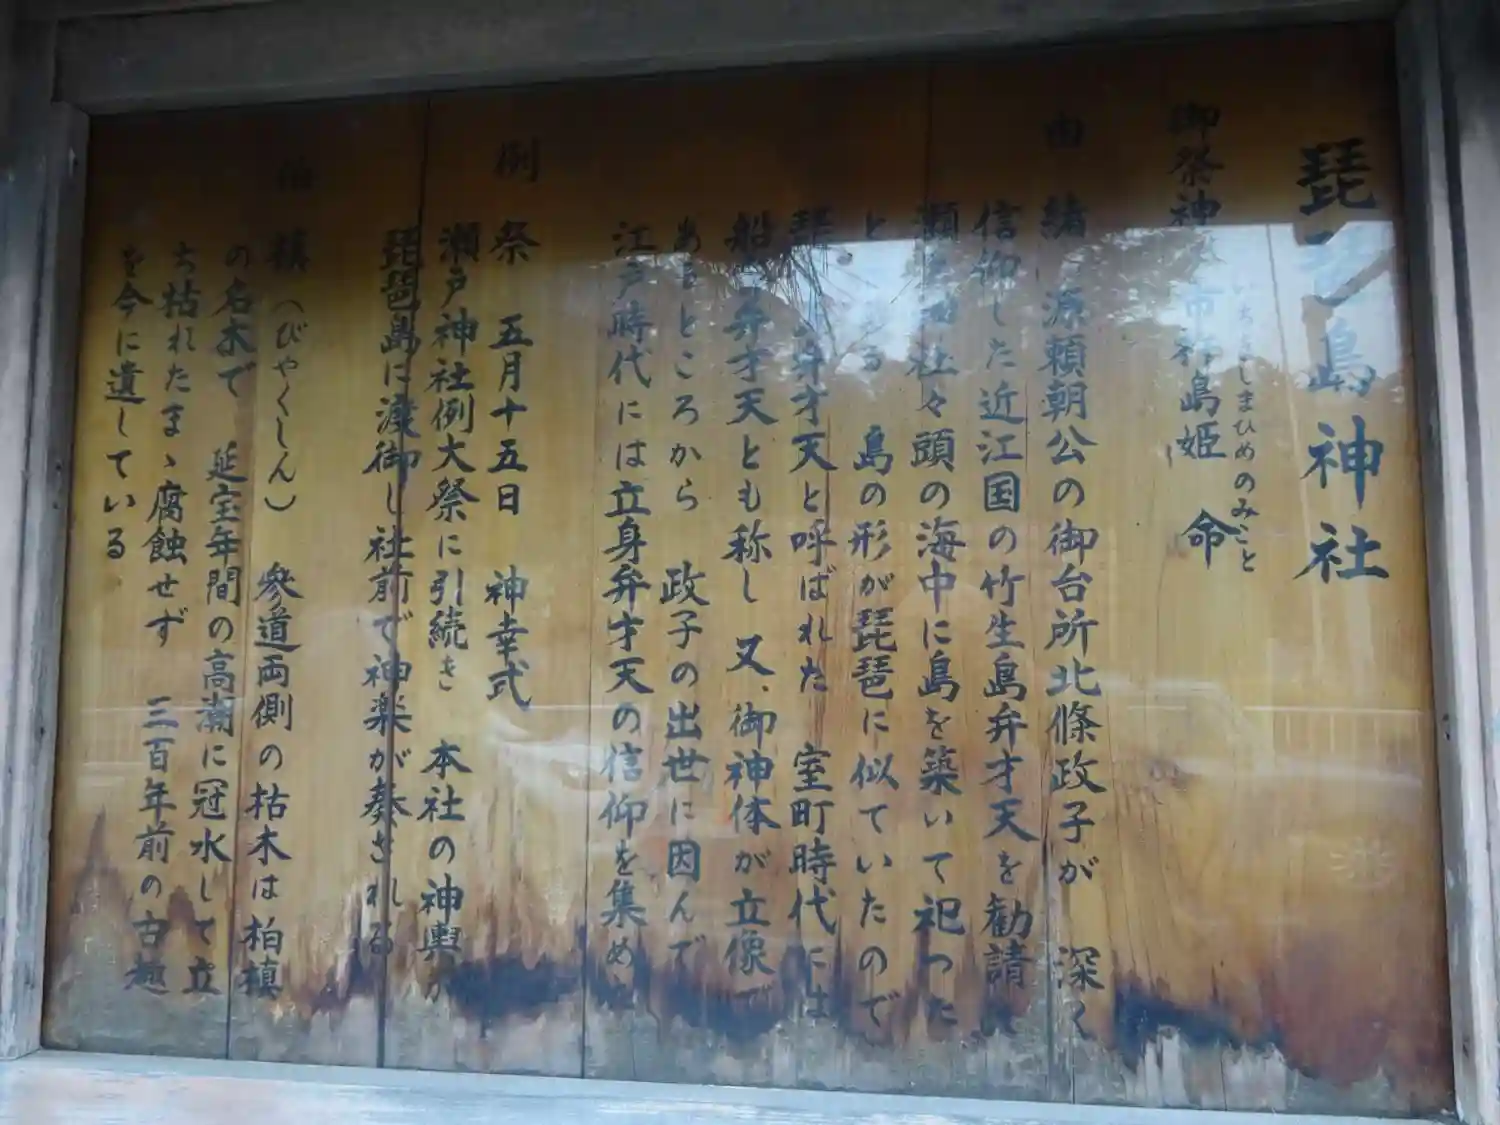 琵琶島神社
御祭神 市杵島姫命
いちきしまひめのみこと
由緒 源頼朝公の御台所北條政子が 深く
信仰した近江国の竹生島弁才天を勧請し
瀬戸神社々頭の海中に島を築いて祀った
とある 島の形が琵琶に似ていたので
琵琶弁才天と呼ばれた 室町時代には
船弁才天とも称し 又、御神体が立像で
あるところから 政子の出世に因んで
江戸時代には立身弁才天の信仰を集めた
例祭 五月十五日 神幸式
瀬戸神社例大祭に引続き 本社の神輿が
琵琶島に渡御し社前で神楽が奏される
柏槙(びやくしん) 参道両側の枯木は柏槙
の名木で 延宝年間の高潮に冠水して立
ち枯れたまゝ腐蝕せず 三百年前の古趣
を今に遺している。